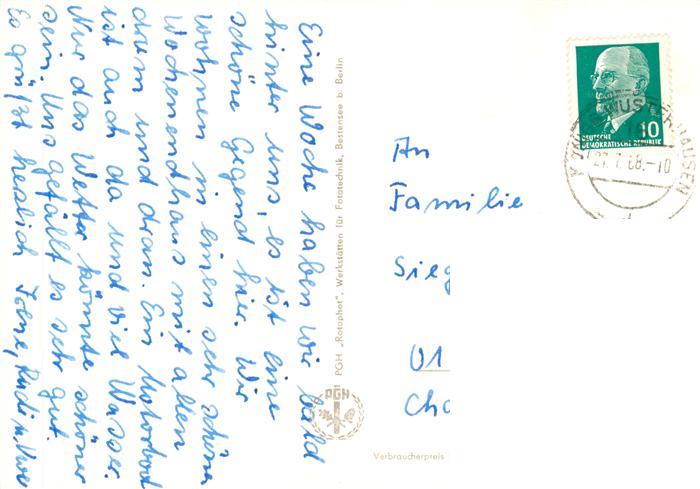 Eine Woche haben wir bald
hinter uns, es ist eine
schöne Gegend hier. Wir
wohnen in einem sehr schönen
Wochenendhaus mit allem
dran und dran. Ein Motorboot
ist auch da und viel Wasser.
Nur das Wetter könnte schöner
sein. Uns gefällt es sehr gut.
Es grüßt herzlich Irene, Rudi u. Uwe
PGH „Rotophot", Werkstätten für Fototechnik, Bestensee b. Berlin
PGH
Verbraucherpreis
DEUTSCHE
DEMOKRATISCHE REPUBLIK
10
WUSTERHAUSEN
27.7.68.-10
An
Familie
Sieg
01
Cha